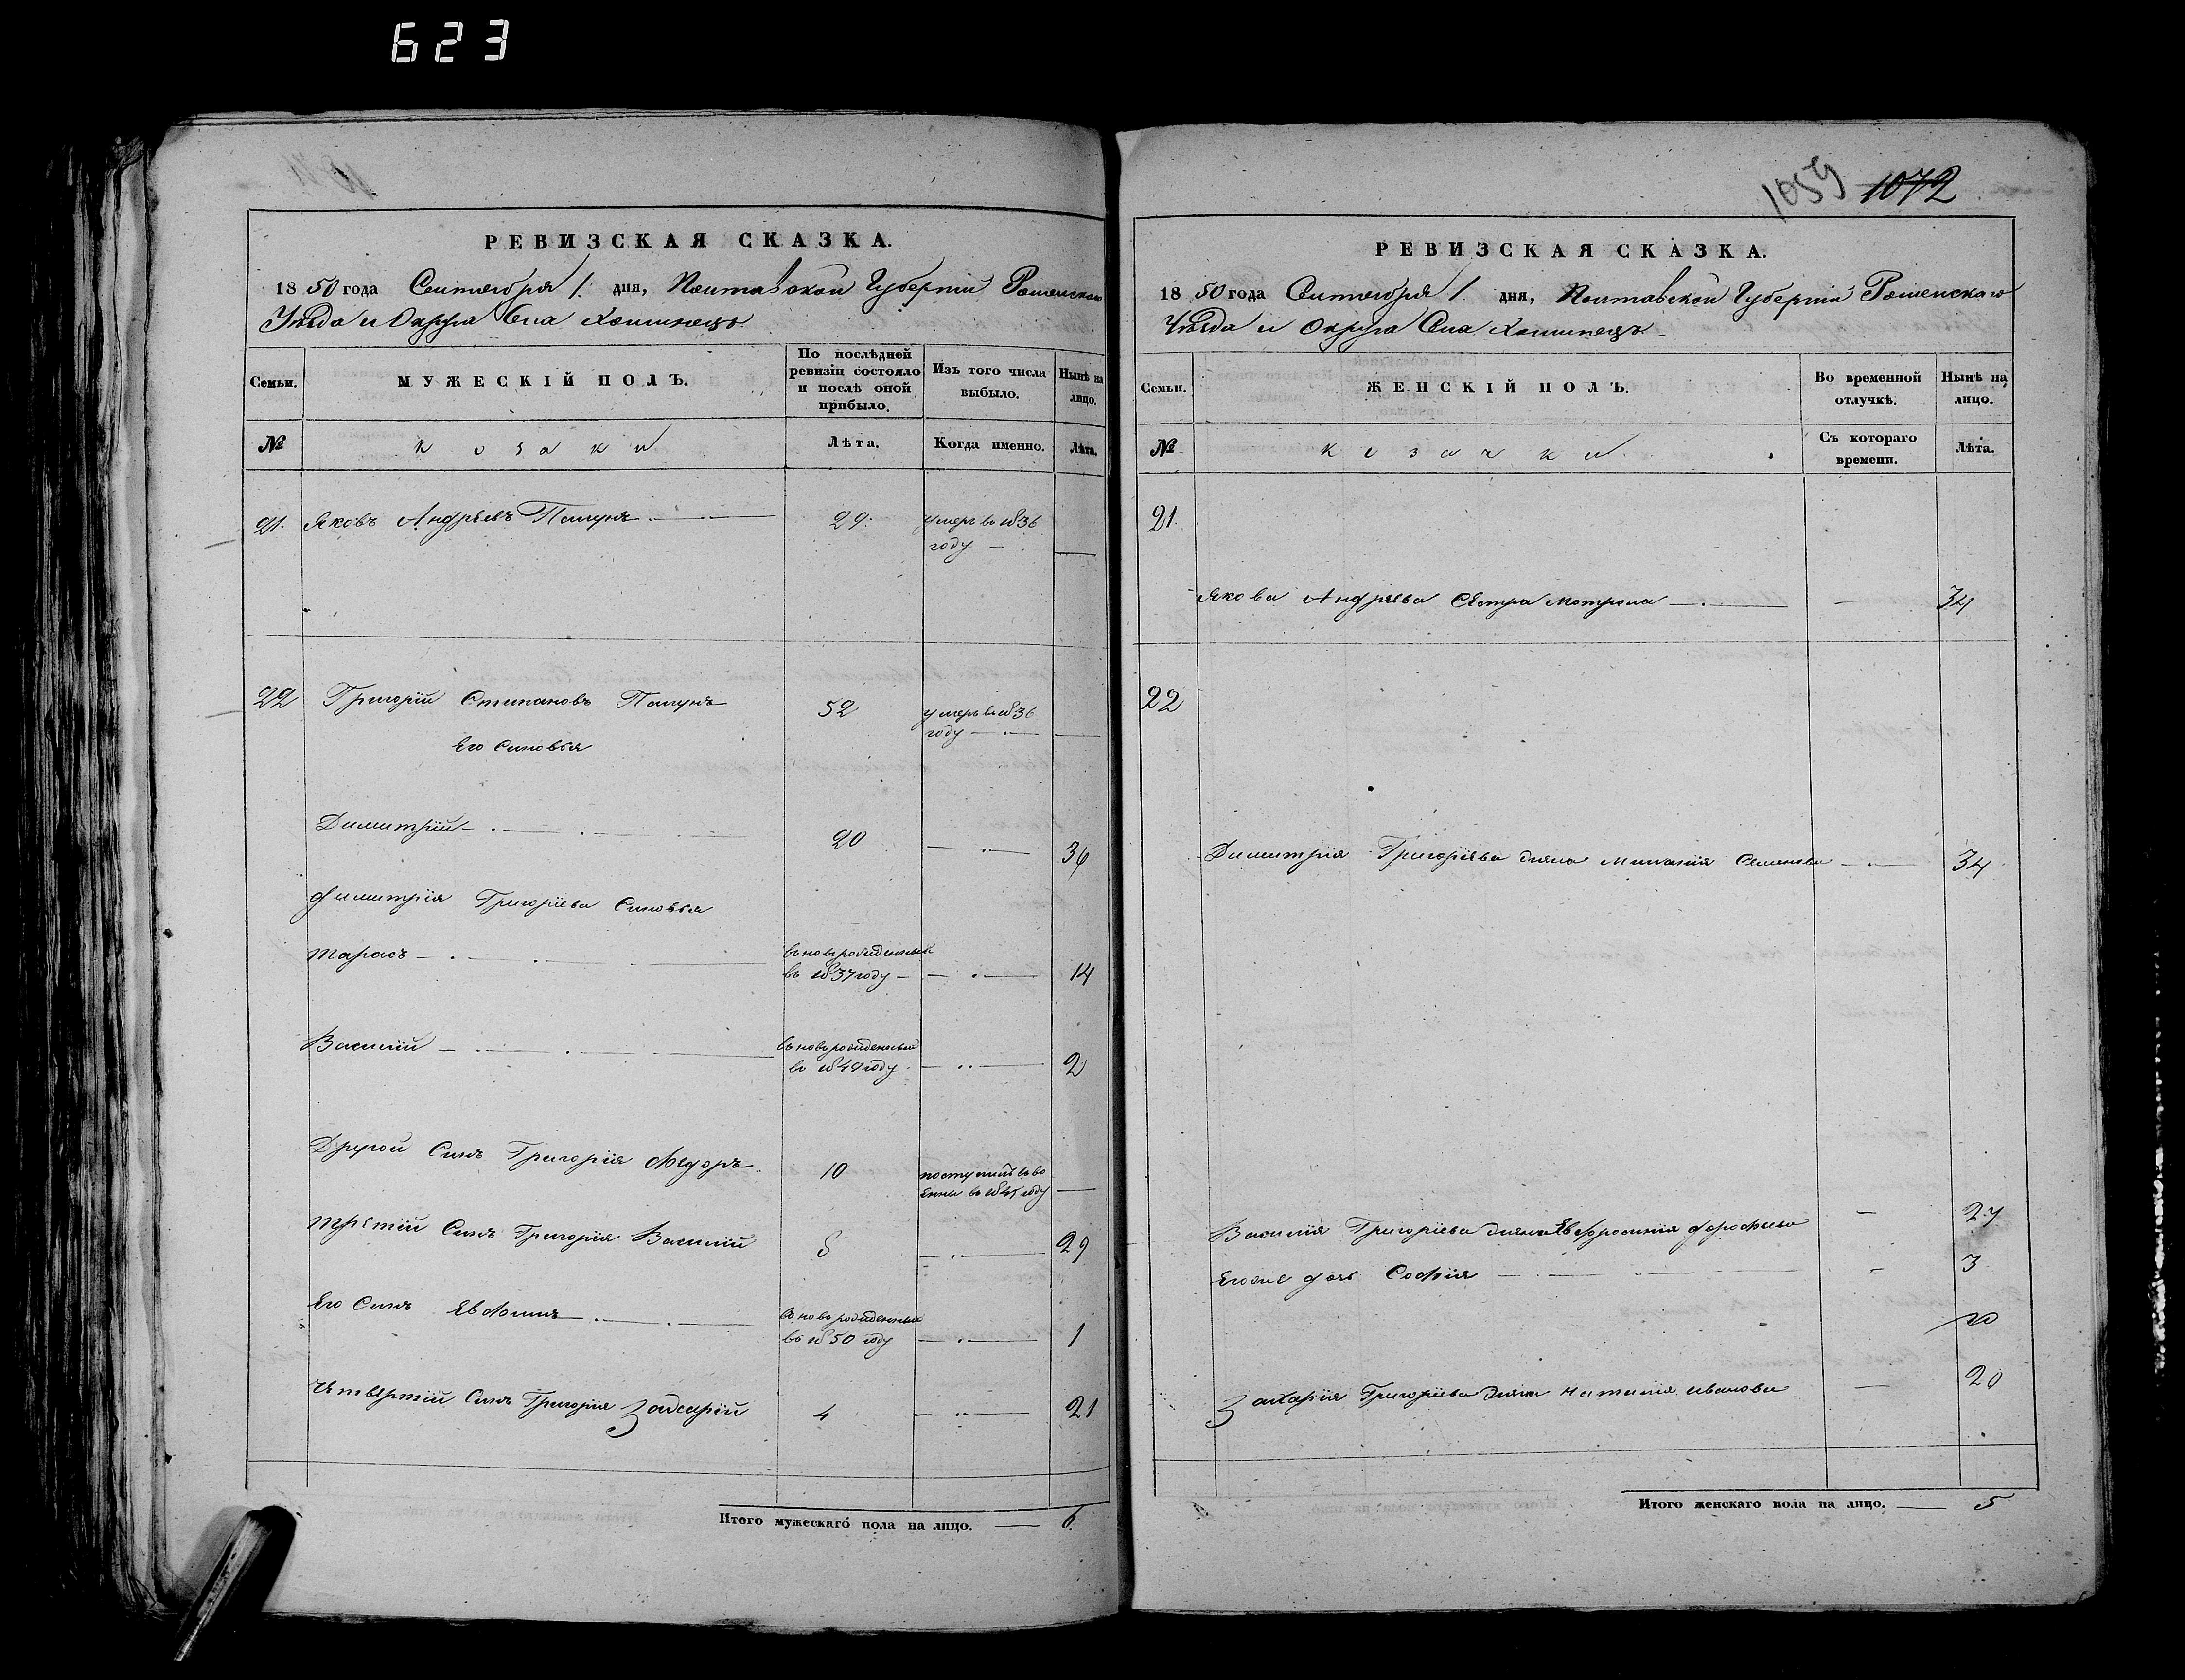 623
РЕВИЗСКАЯ СКАЗКА.
1850 года Сентября 1. дня, Полтавской Губерніи Роменского
Уѣзда и Округа Села
Семьи.
МУЖЕСКІЙ ПОЛЪ.
По послѣдней ревизіи состояло и послѣ оной прибыло.
Изъ того числа выбыло.
Нынѣ на лицо.
№
козаки
Лѣта.
Когда именно.
Лѣта.
21. Яковъ Андрѣевъ 29. умеръ въ 1836
году —
22 Григорій Стипановъ 52 умеръ въ 1836
году —
Его Синовья
Димитрій — 20 — 36
Димитрія Григоріева Синовья
Тарасъ — въ новорожденный
въ 1837 году — — 14
Василій — въ новорожденный
въ 1849 году — 2
Другой Синъ Григорія Федоръ 10 поступилъ въ во
енни въ 184 году —
Третій Синъ Григорія Василій 8 — 29
Его Синъ Евфимъ — въ новорожденный
въ 1850 году — 1
Четвертій Синъ Григорія Захарій 4 — 21
Итого мужескаго пола на лицо. — 6
1059 1072
РЕВИЗСКАЯ СКАЗКА.
1850 года Сентября 1. дня, Полтавской Губерніи Роменскаго
Уѣзда и Округа Села
Семьи.
ЖЕНСКІЙ ПОЛЪ.
Во временной отлучкѣ.
Нынѣ на лицо.
№
козачки
Съ котораго времени.
Лѣта.
21.
Якова Андрѣева Сестра Мотрона — — 34
22
Димитрія Григоріева жена Миланія Семенова — 34
Василія Григоріева жена Евфросинія Дорофеева — 27
Егоже дочь Софія — — 3
20
Захарія Григоріева жена Наталія Иванова — 20
Итого женскаго пола на лицо. — 5